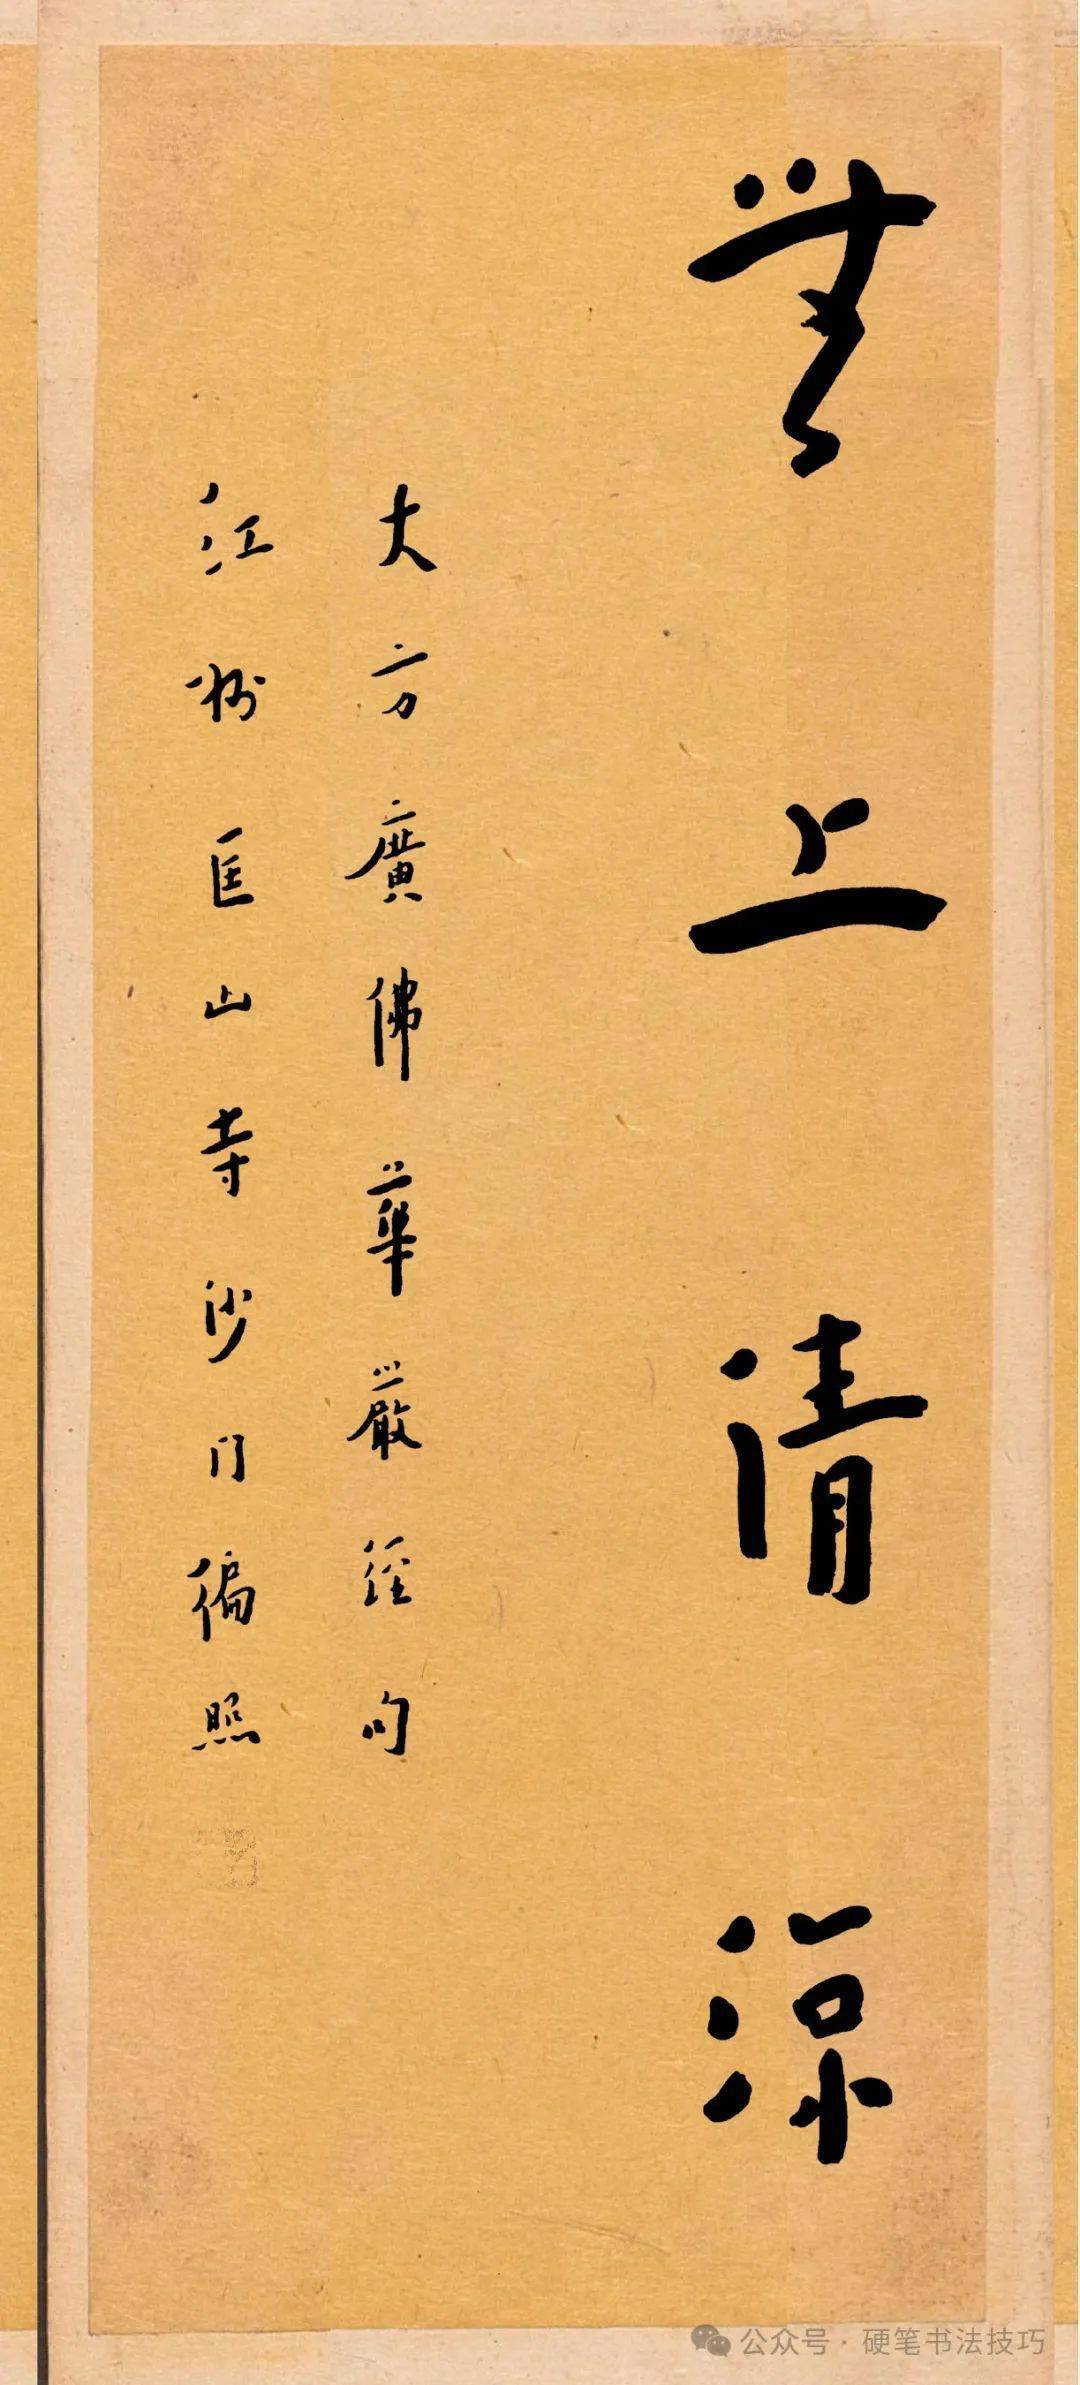 無上清涼
大方廣佛華嚴經句
江州匡山寺沙门徧照
公众号·硬笔书法技巧